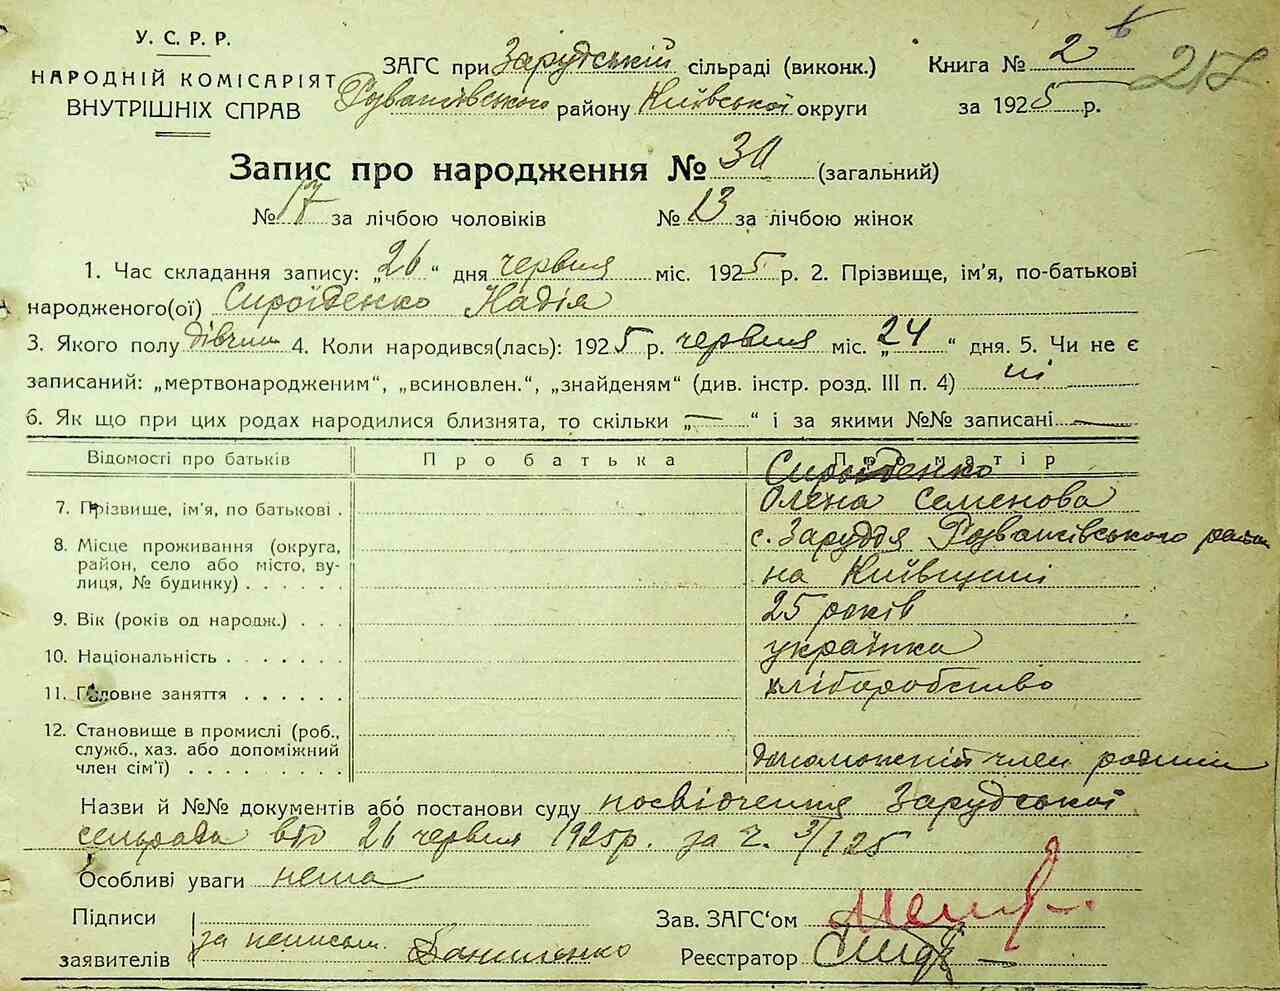 У. С. Р. Р.
НАРОДНІЙ КОМІСАРІЯТ
ВНУТРІШНІХ СПРАВ
ЗАГС при Зарудській сільраді (виконк.)
Розважівського району Київської округи
Книга № 2
за 1925 р.
217
Запис про народження № 30 (загальний)
№ 17 за лічбою чоловіків № 13 за лічбою жінок
1. Час складання запису: „26“ дня червня міс. 1925 р. 2. Прізвище, ім’я, по-батькові
народженого(ої) Сироїденко Надія
3. Якого полу дівчин 4. Коли народився(лась): 1925 р. червня міс. „24“ дня. 5. Чи не є
записаний: „мертвонародженим“, „всиновлен.“, „знайденям“ (див. інстр. розд. III п. 4) ні
6. Як що при цих родах народилися близнята, то скільки „—“ і за якими №№ записані —
Відомості про батьків Про батька Про матір
Сироїденко
7. Прізвище, ім’я, по батькові . Олена Семенова
8. Місце проживання (округа, с. Заруддя Розважівського район
район, село або місто, ву-
лиця, № будинку) . . . . . на Київщині
9. Вік (років од народж.) . . . 25 років
10. Національність . . . . . . . українка
11. Головне заняття . . . . . хліборобство
12. Становище в промислі (роб.,
служб., хаз. або допоміжний
член сім’ї) . . . . . . . . допоможній член родини
Назви й №№ документів або постанови суду посвідчення Зарудської
сільрада від 26 червня 1925 р. за ч. 3/125
Особливі уваги нема
Підписи
заявителів за неписьм.
Зав. ЗАГС‘ом
Реєстратор